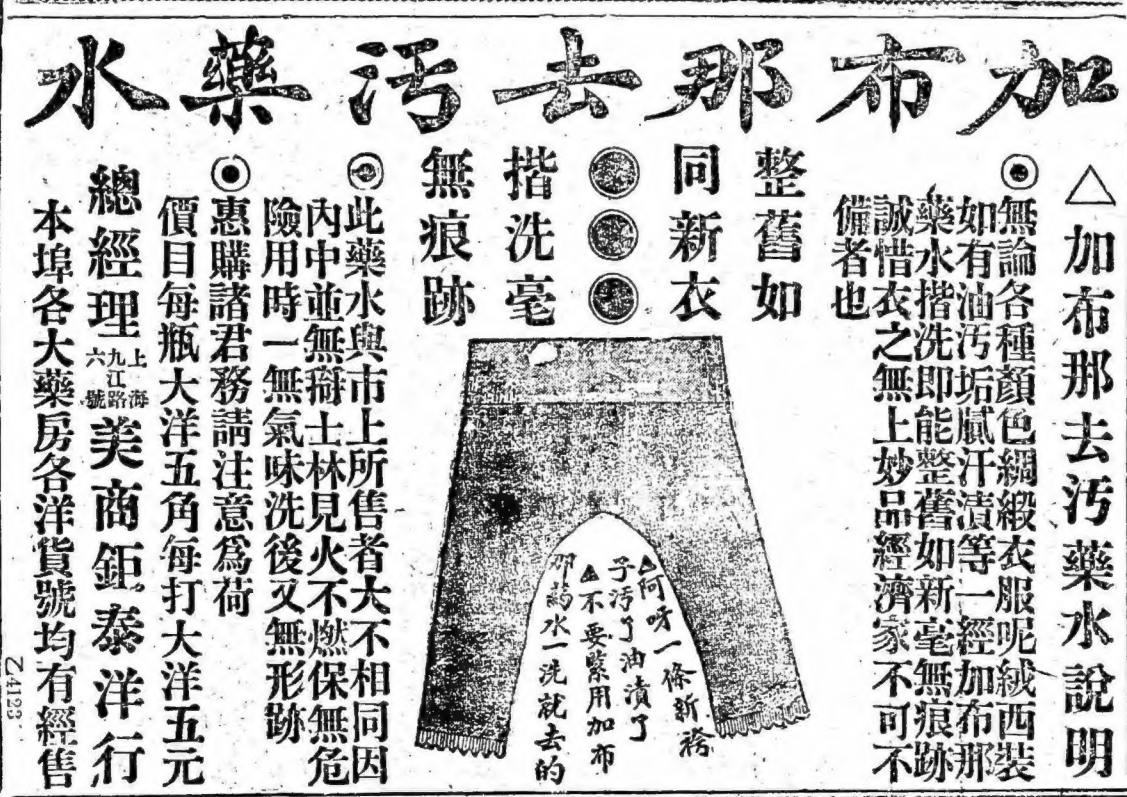 加布那去污藥水
△加布那去污藥水說明
⦿無論各種顏色綢緞衣服呢絨西裝
如有油污垢膩汗漬等一經加布那
藥水揩洗即能整舊如新毫無痕跡
誠惜衣之無上妙品經濟家不可不
備者也
整舊如
同新衣
揩洗毫
無痕跡
▲阿呀一條新袴
子污了油漬了
▲不要緊用加布
那葯水一洗就去的
⦿此藥水與市上所售者大不相同因
內中並無搿士林見火不燃保無危
險用時一無氣味洗後又無形跡
⦿惠購諸君務請注意為荷
價目每瓶大洋五角每打大洋五元
總經理上海九江路六號美商鉅泰洋行
本埠各大藥房各洋貨號均有經售
24123